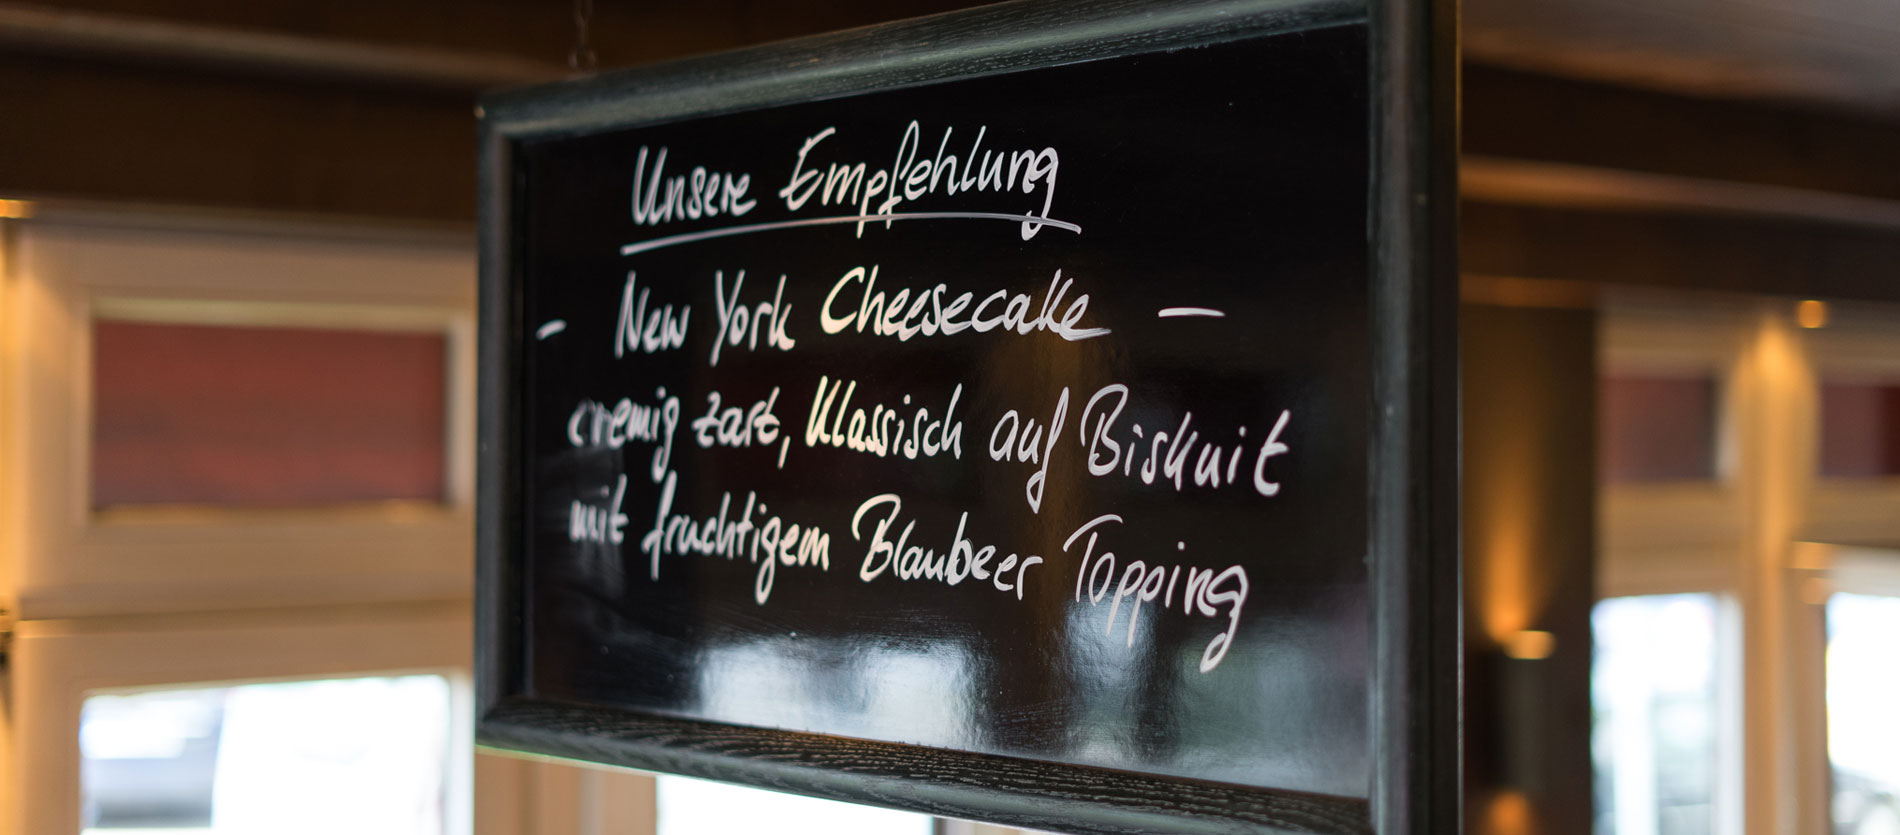 Unsere Empfehlung
- New York Cheesecake -
cremig zart, Klassisch auf Biskuit
mit fruchtigem Blaubeer Topping